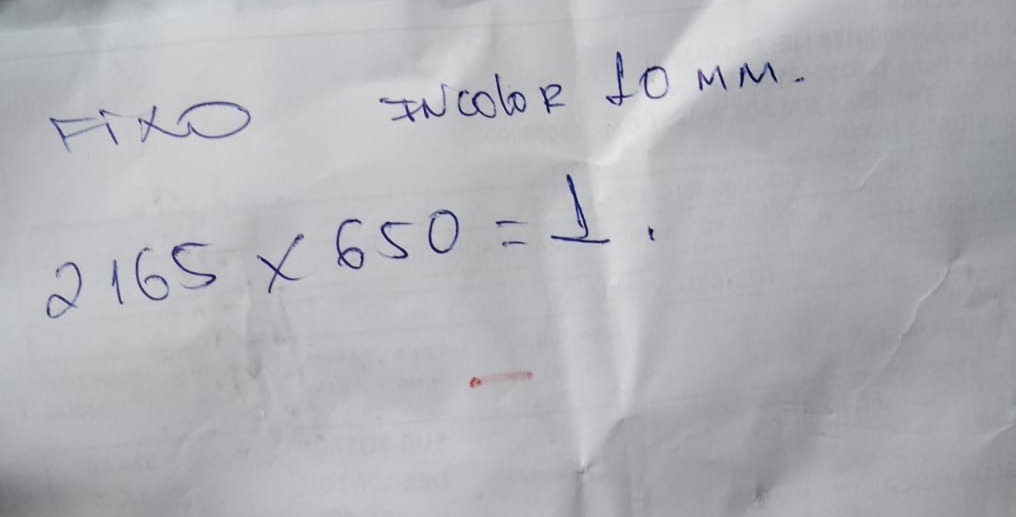 FIXO INCOLOR 10 MM.
2165 X 650 = 1.